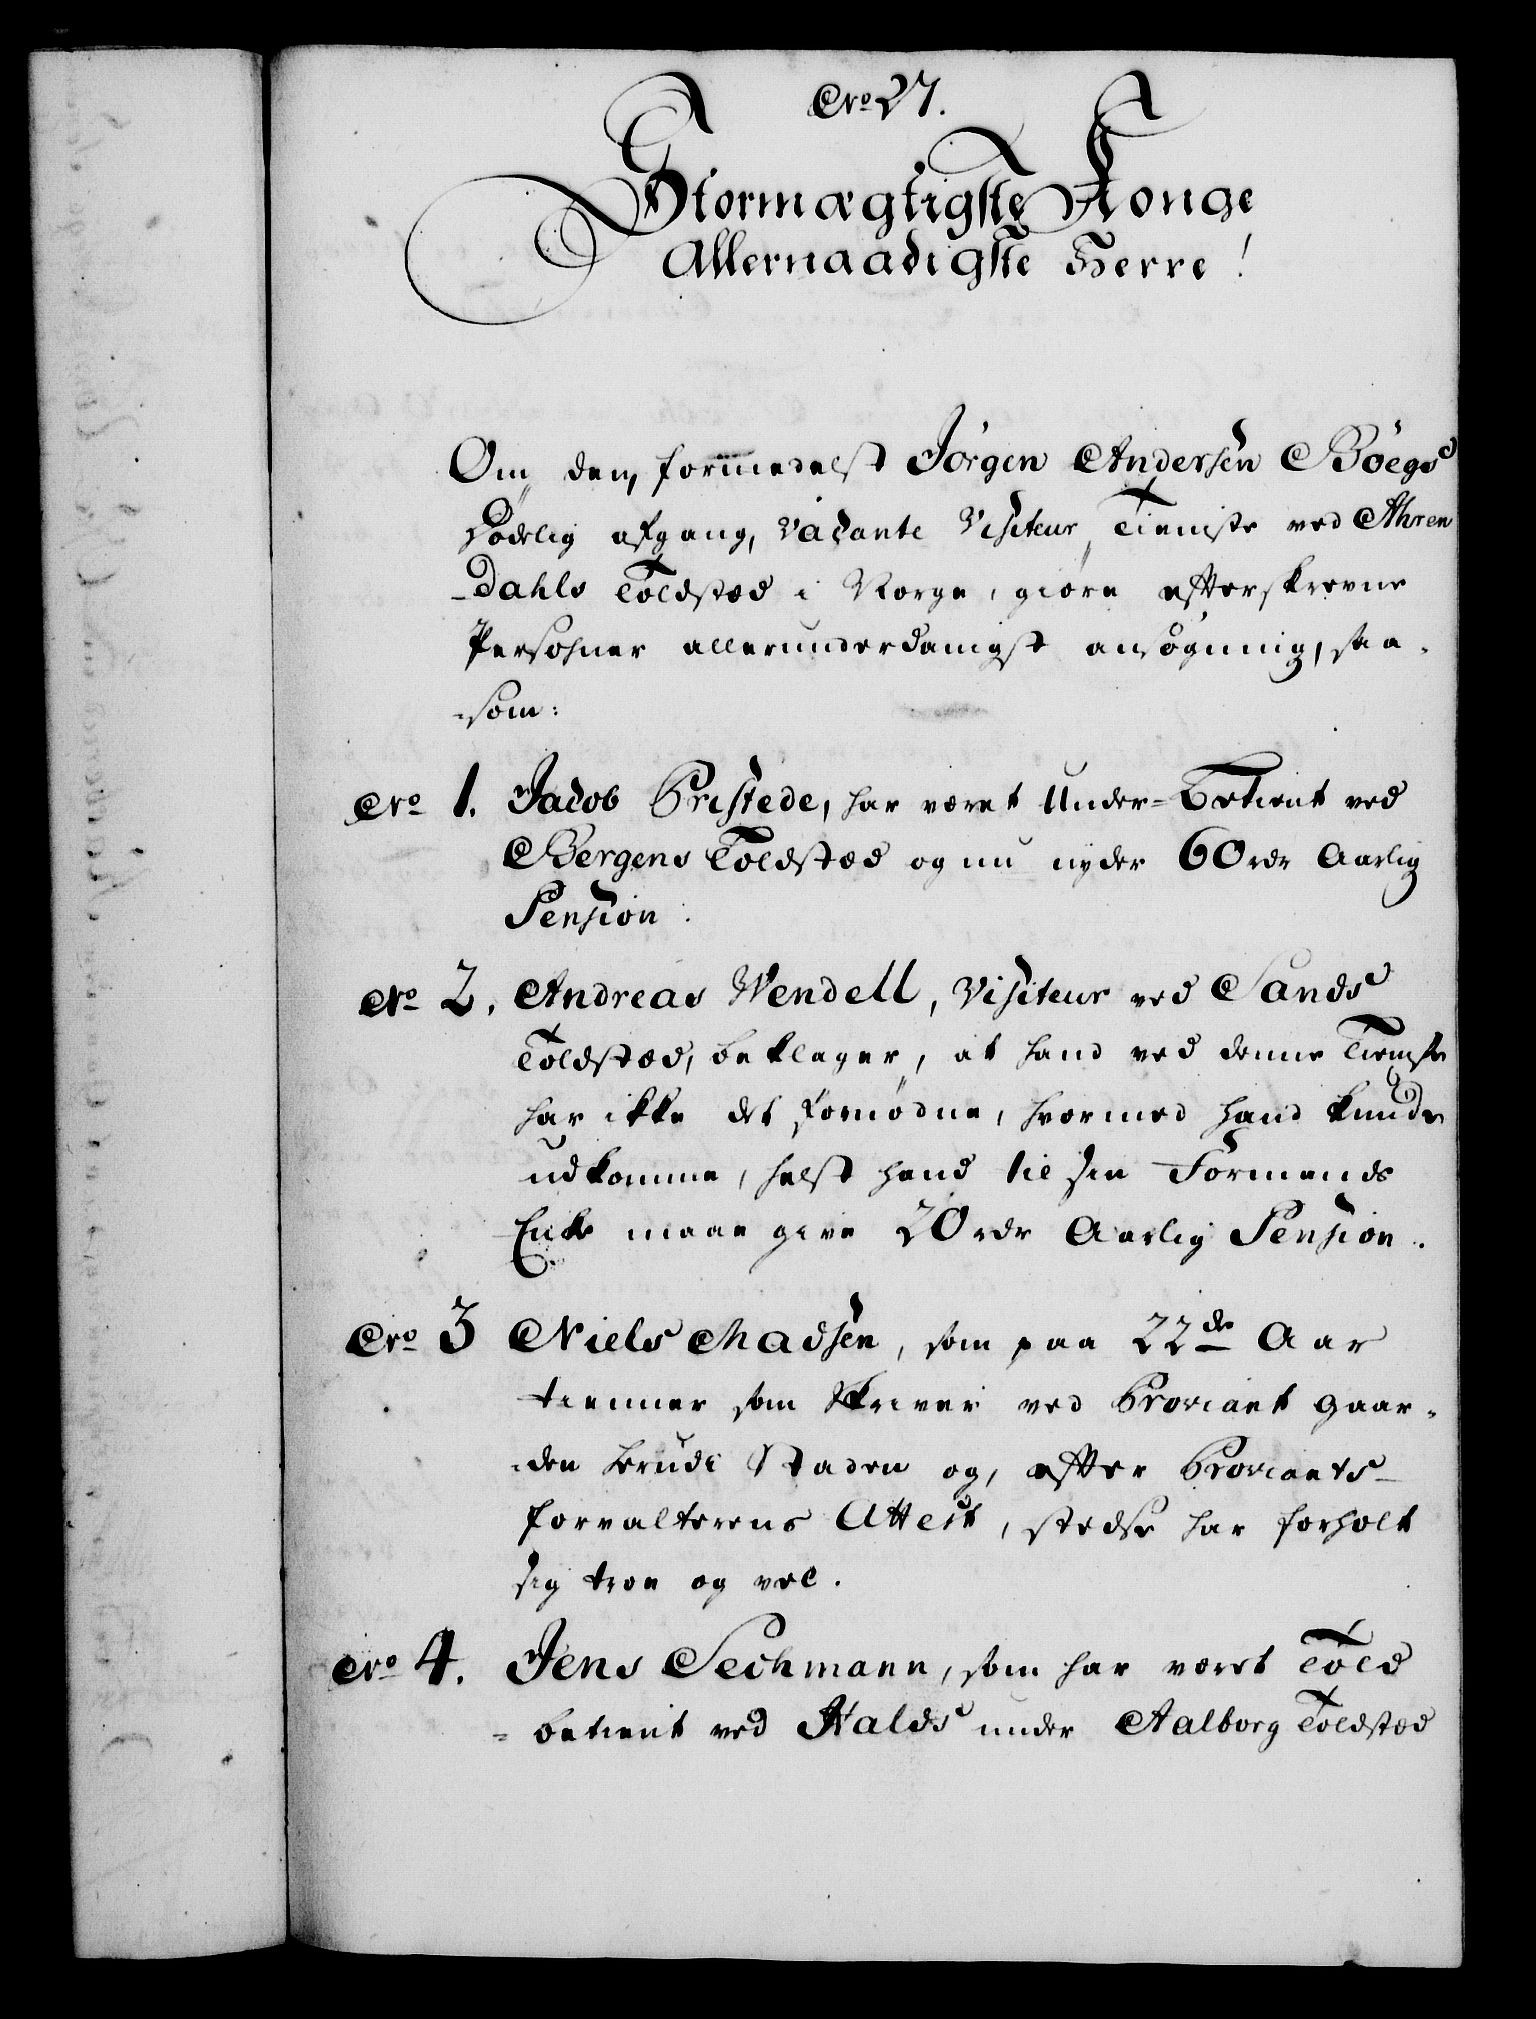 Nro 27.
Stormægtigste Konge
Allernaadigste Herre!
Om den, formedelst Jörgen Andersen Böegs
Dödelig afgang, vacante Visiteur Tieniste ved Ahren
-dahls Toldsted i Norge, giöre efterskrevne
Persohner allerunderdanigst ansögning, saa-
-som:
Nro 1. Jacob Pristede, har været Under-Betient ved
Bergens Toldsted og nu nyder 60 rdr Aarlig
Pension.
No 2. Andreas Wendell, Visiteur ved Sands
Toldsted, beklager, at hand ved denne Tieniste
har ikke det fornödne, hvormed hand kunde
udkomme, helst hand til sin Formands
Enke maae give 20 rdr Aarlig Pension.
Nro 3 Niels Madsen, som paa 22de Aar
tienner som Skriver ved Proviant gaar-
-den herudi Staden og, efter Proviants-
forvalterens Attest, stedse har forholt
sig troe og vel.
Nro 4. Jens Sechmann, som har været Told
-betient ved Halds under Aalborg Toldsted